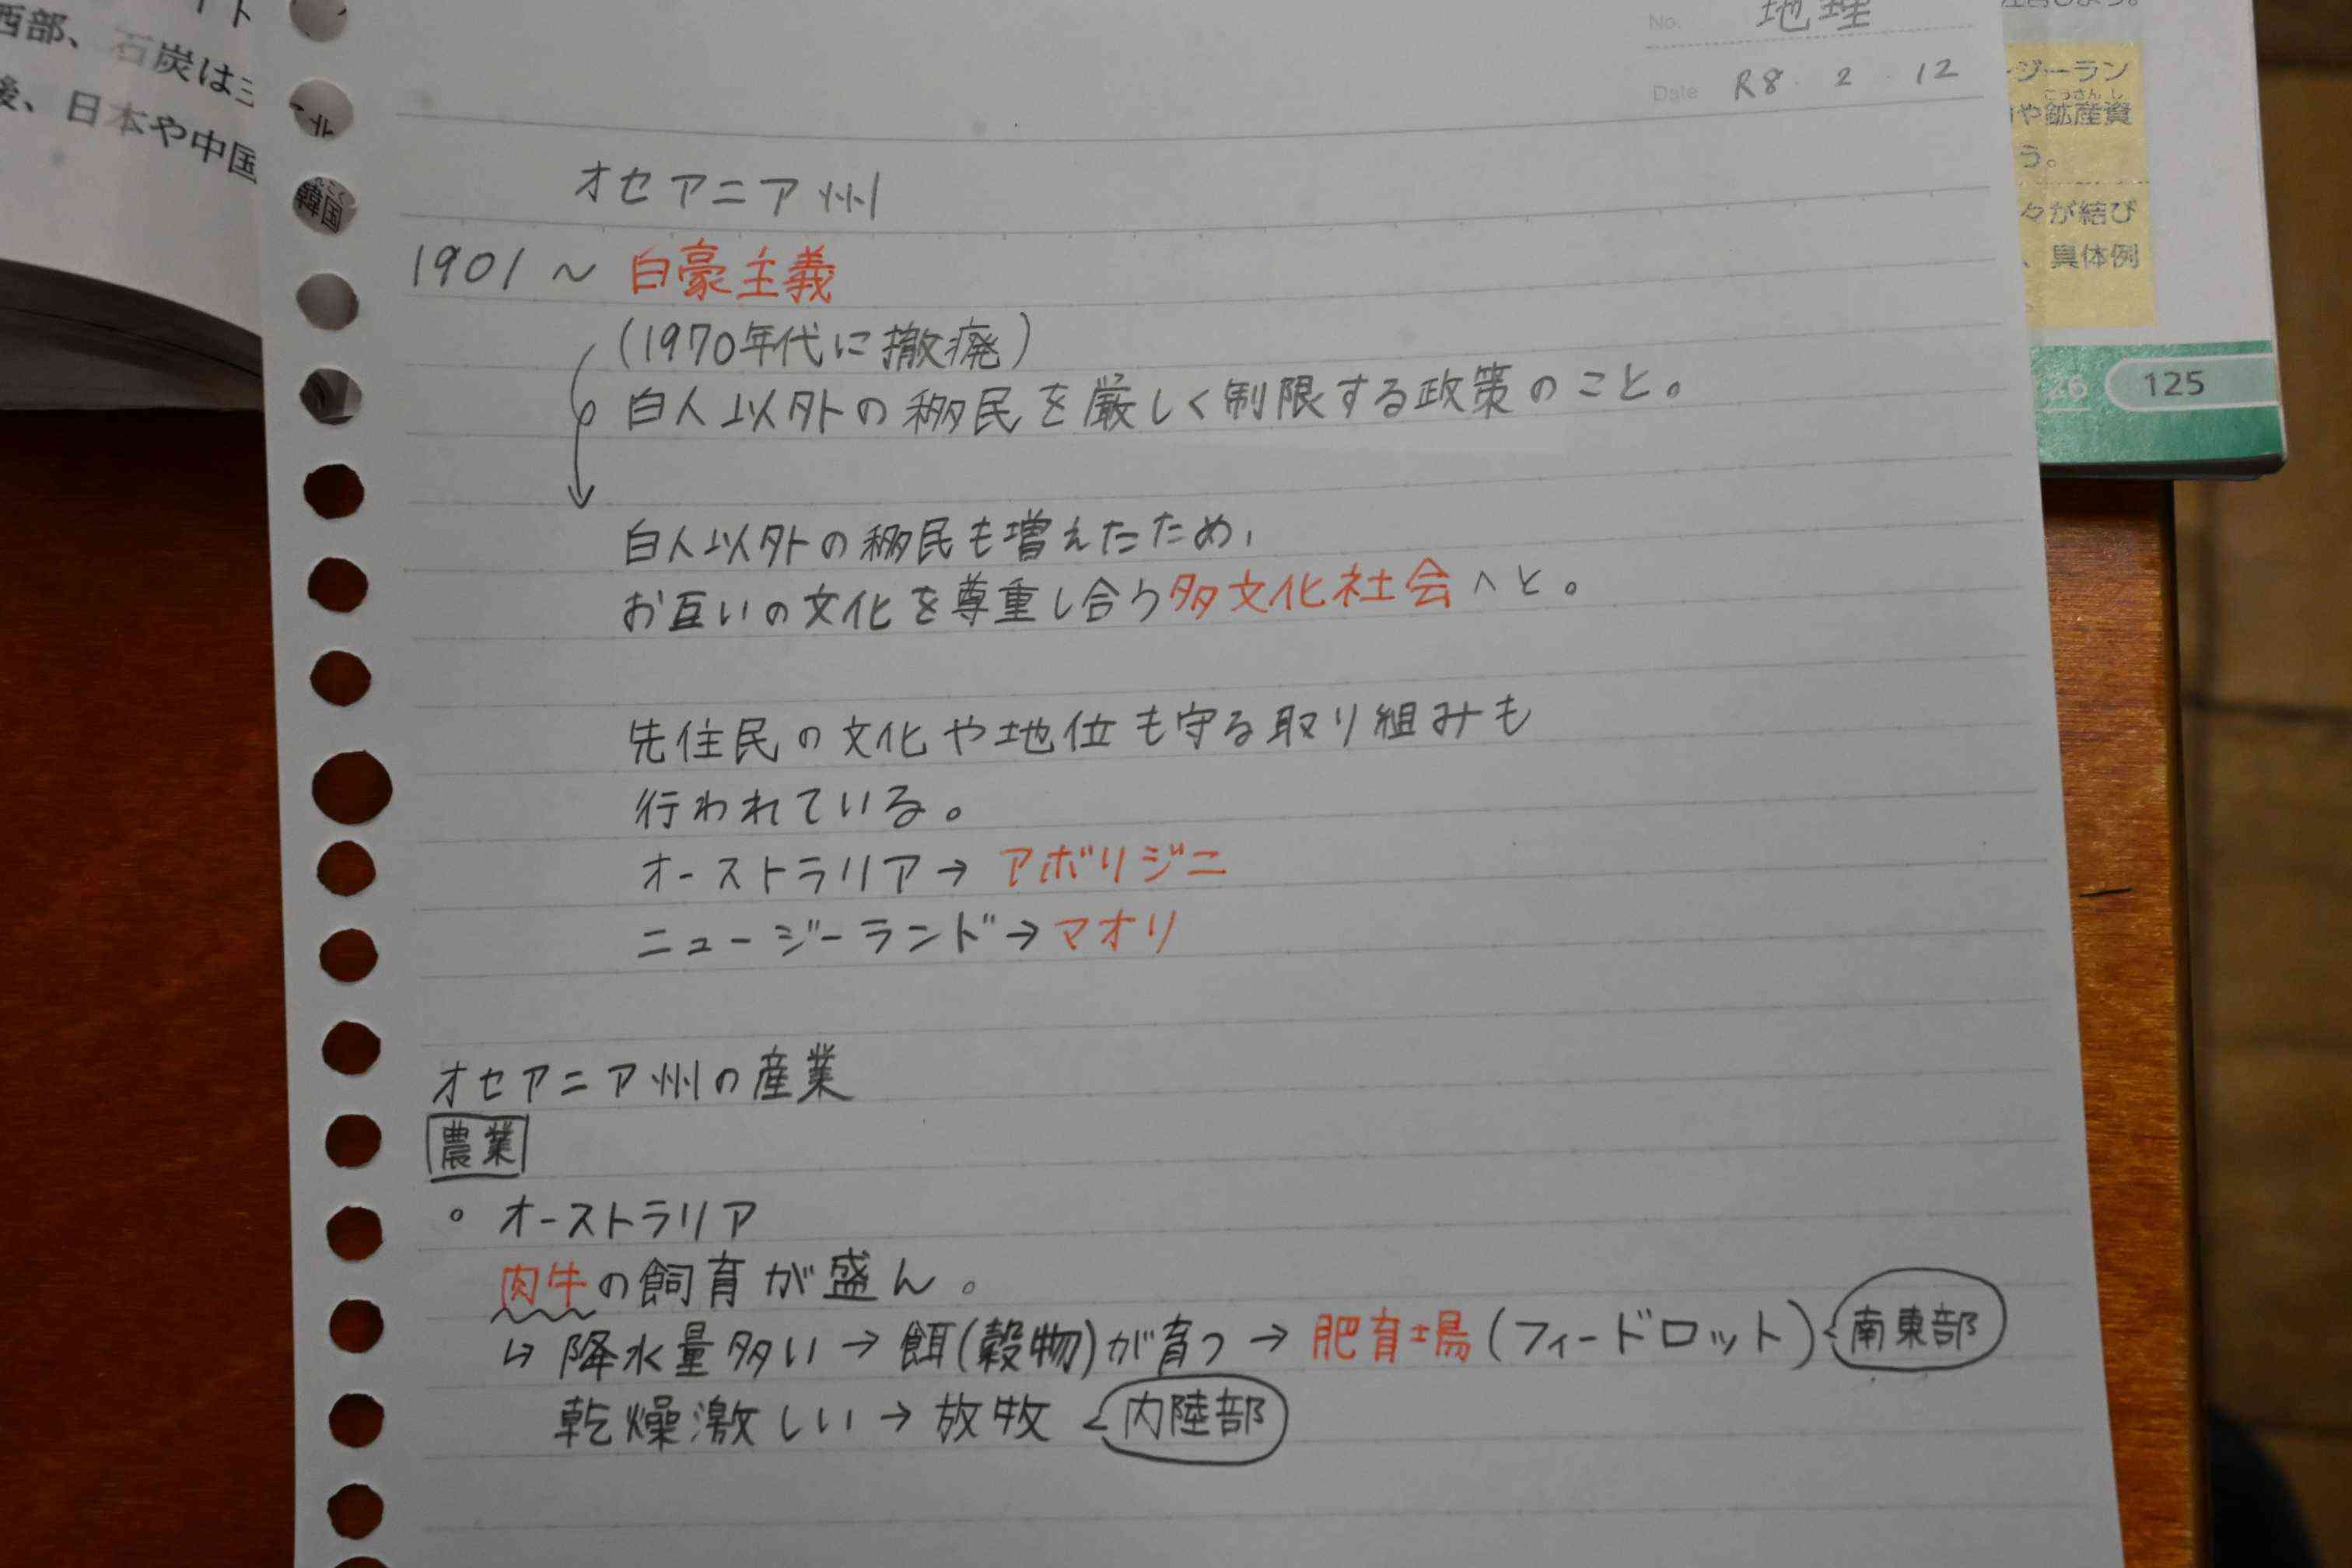 西部、石炭は三
後、日本や中国
北
韓国
No. 地理
Date R8. 2. 12
オセアニア州
1901～白豪主義
(1970年代に撤廃)
白人以外の移民を厳しく制限する政策のこと。
白人以外の移民も増えたため,
お互いの文化を尊重し合う多文化社会へと。
先住民の文化や地位も守る取り組みも
行われている。
オーストラリア→アボリジニ
ニュージーランド→マオリ
オセアニア州の産業
農業
。オーストラリア
肉牛の飼育が盛ん。
↳降水量多い→餌(穀物)が育つ→肥育場(フィードロット) 南東部
乾燥激しい→放牧 内陸部
ジーラン
こうさんし
や鉱産資
う。
々が結び
、具体例
26 125